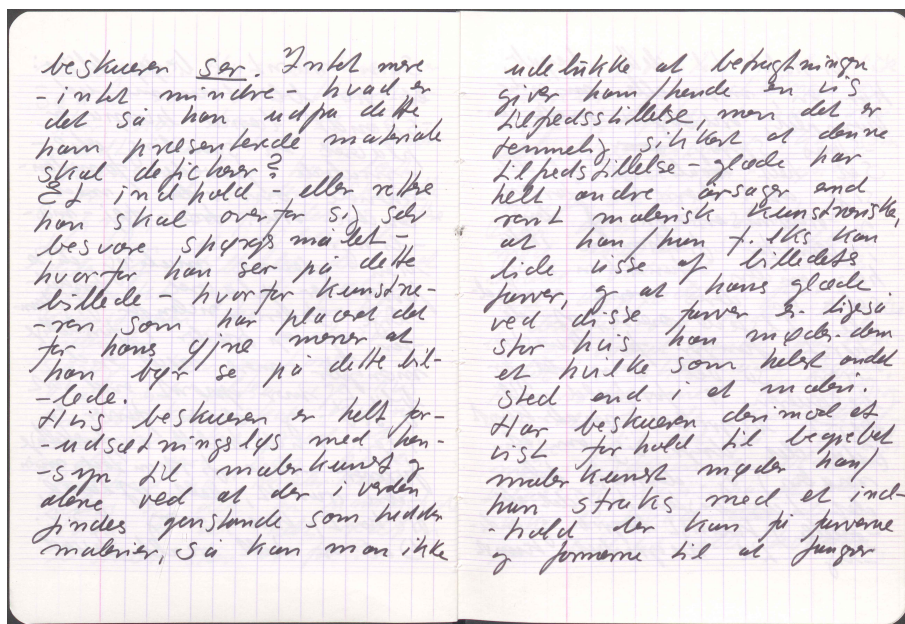 beskueren ser. Intet mere
- intet mindre - hvad er
det så han udfra dette
ham præsenterede materiale
skal defichrer?
Et indhold - eller rettere
han skal overfor sig selv
besvare spørgsmålet -
hvorfor han ser på dette
billede - hvorfor kunstne-
-ren som har placeret det
for hans øjne mener at
han bør se på dette bil-
-lede.
Hvis beskueren er helt for-
-udsætningsløs med hen-
-syn til malerkunst og
alene ved at der i verden
findes genstande som hedder
malerier, så kan man ikke
udelukke at befrugtningen
giver ham/hende en vis
tilfredsstillelse, men det er
temmelig sikkert at denne
tilfredstillelse - glæde har
helt andre årsager end
rent malerisk kunstneriske,
at han/hun f. eks kan
lide visse af billedets
farver, og at hans glæde
ved disse farver er ligeså
stor hvis han møder dem
et hvilke som helst andet
sted end i et maleri.
Har beskueren derimod et
vist forhold til begrebet
malerkunst møder han/
hun straks med et ind-
-hold der kan få farverne
og formerne til at fungere